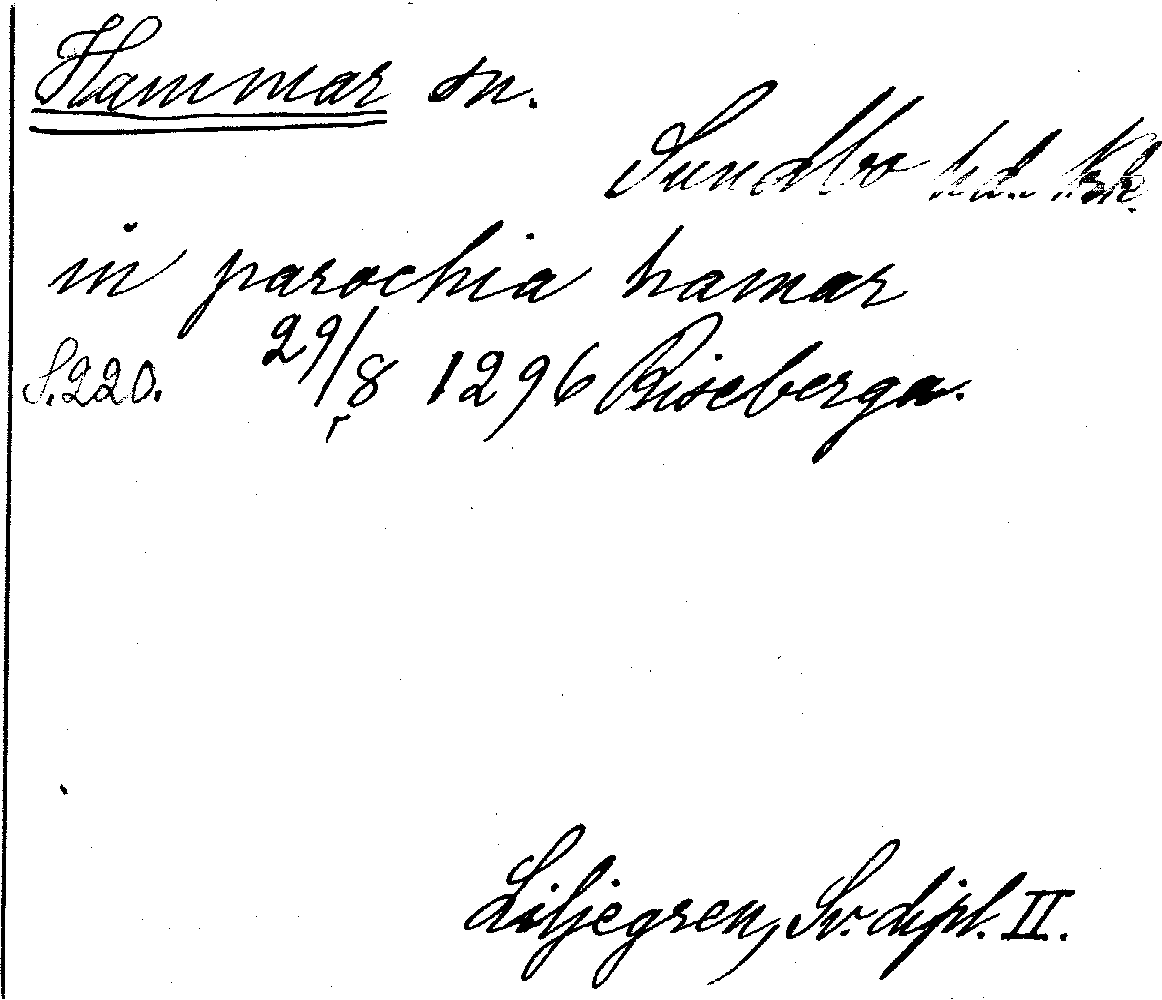 Hammar sn.
Sundbo hd.
in parochia hamar
S. 220. 29/8 1296 Riseberga.
Liljegren, Sv. dipl. II.